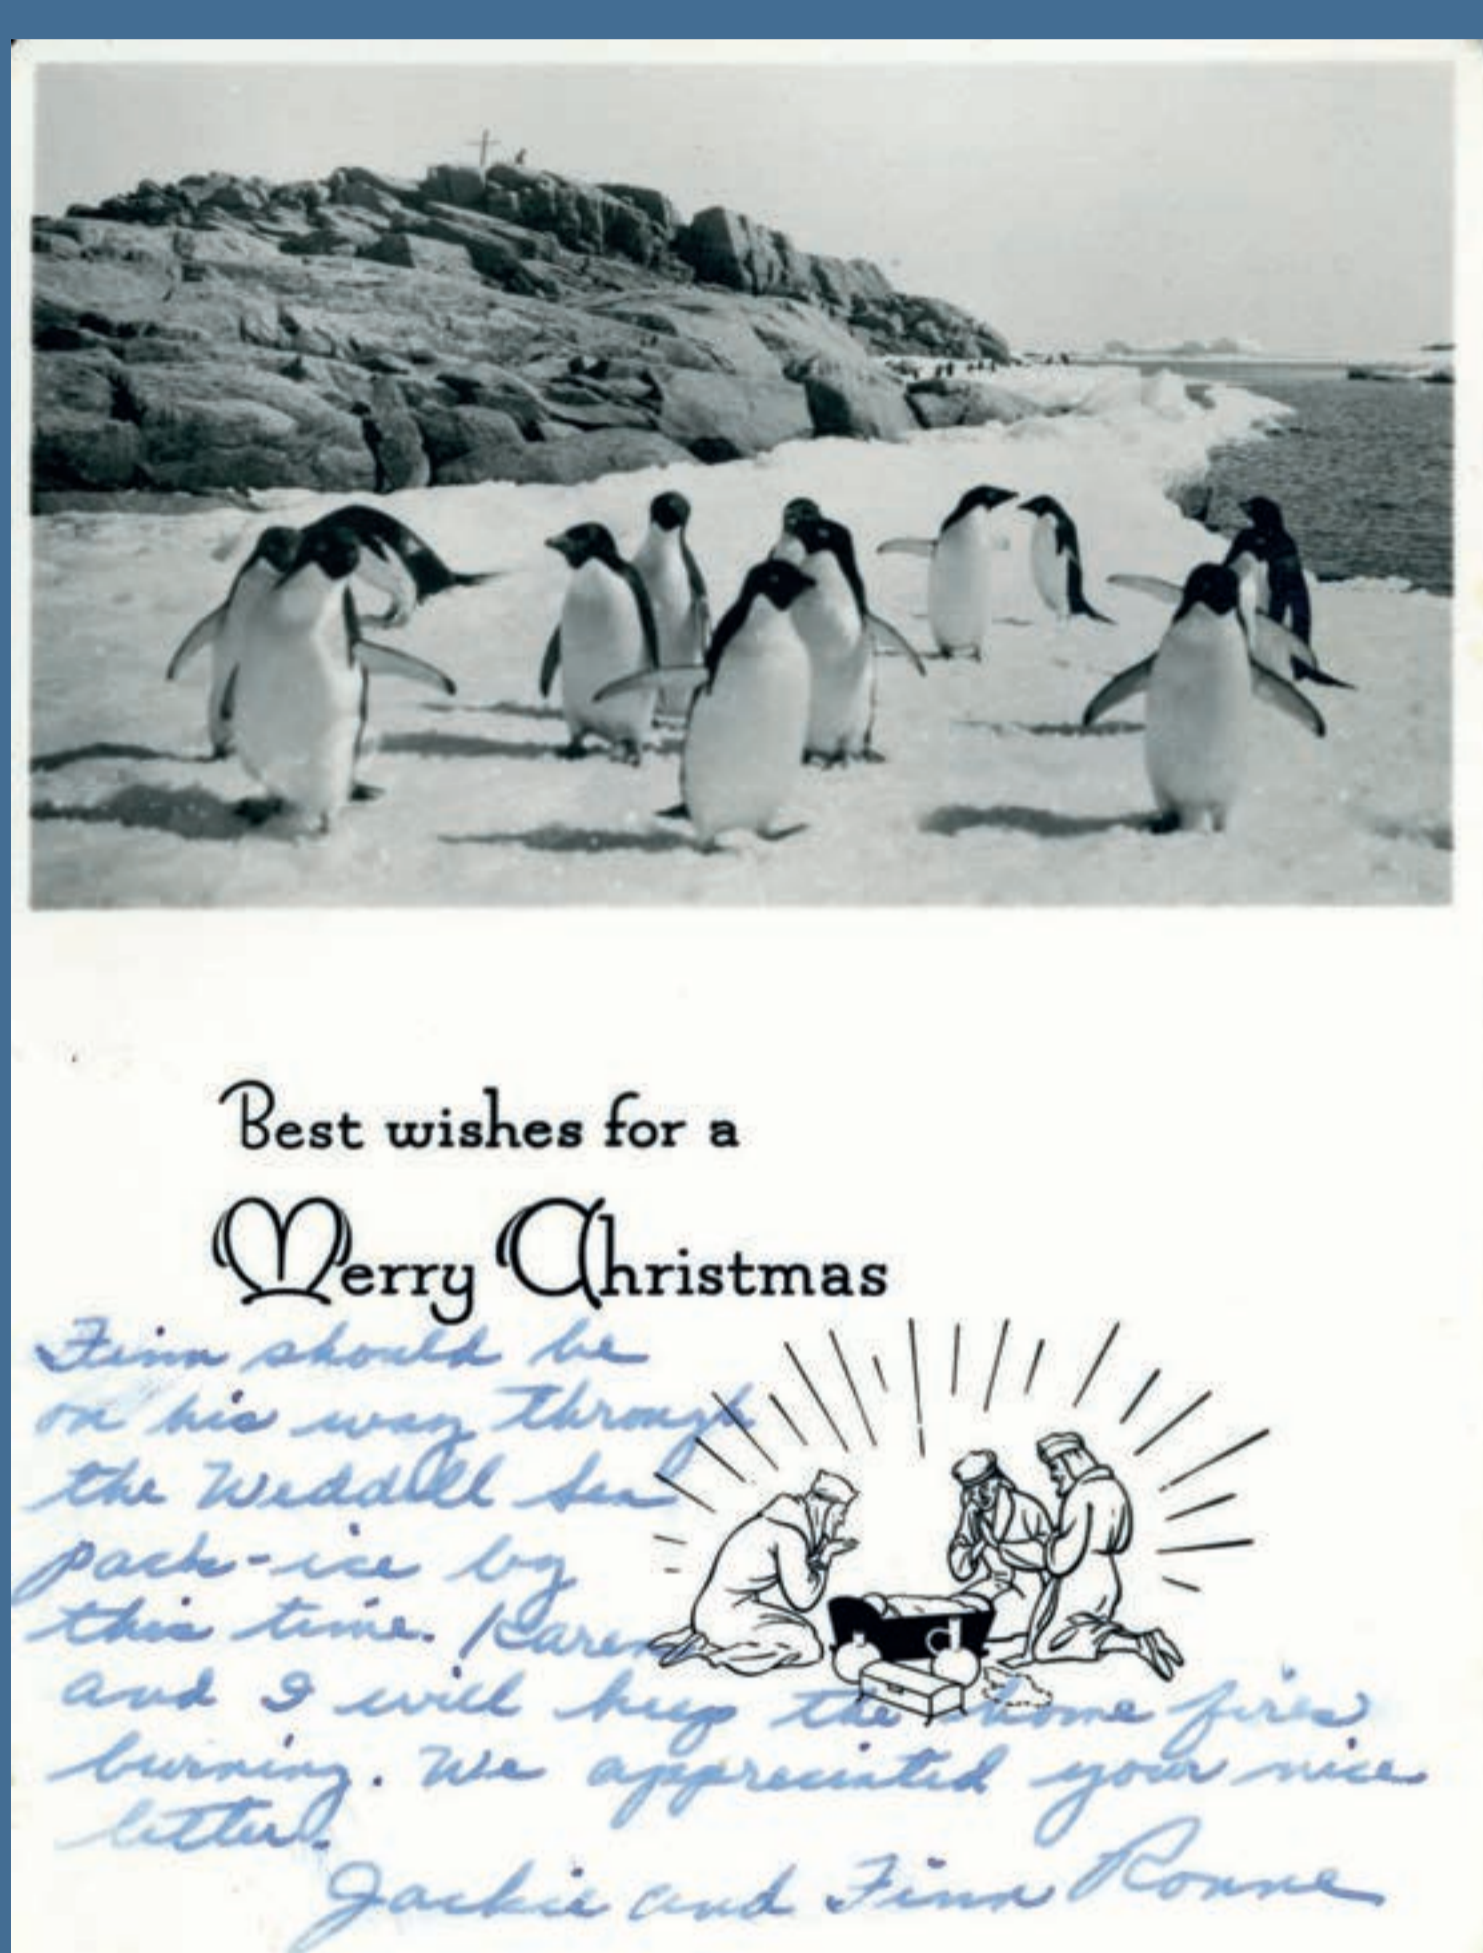 Best wishes for a
Merry Christmas
Finn should be
on his way through
the Weddell Sea
pack-ice by
this time. Karen
and I will keep the home fires
burning. We appreciated your nice
letter.
Jackie and Finn Ronne